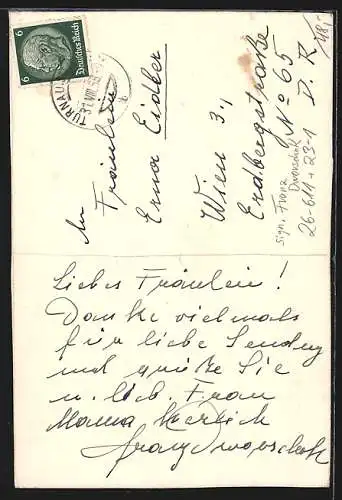 6 6
Deutsches Reich
TURNAU
31.VIII.39
An
Fräulein
Erna Eidler
Wien 3.,
Erdbergstraße
No 65
D. R.
sign. Franz
26-611+23-1
Liebes Fräulein!
Danke vielmals
für liebe Sendung
und grüße Sie
u. lieb. Frau
Mama herzlich